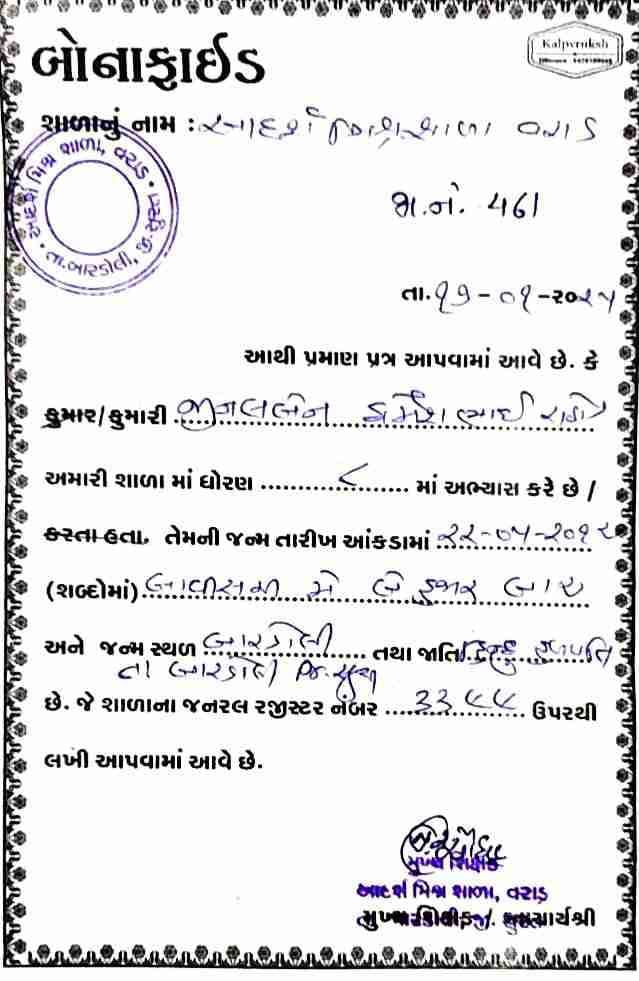 Kalpvruksh
બોનાફાઇડ
શાળાનું નામ : આદર્શ મિશ્રશાળા વરાડ
આદર્શ મિશ્ર શાળા, વરાડ. તા.બારડોલી, જી.સુરત
જા.નં. 461
તા.૧૭-૦૧-૨૦૨૫
આથી પ્રમાણ પત્ર આપવામાં આવે છે. કે
કુમાર/કુમારી જીનલબેન ધર્મેશભાઈ રાઠોડ
અમારી શાળા માં ધોરણ ૮ માં અભ્યાસ કરે છે /
કરતા હતા. તેમની જન્મ તારીખ આંકડામાં ૨૨-૦૫-૨૦૧૨
(શબ્દોમાં) બાવીસમી મે બે હજાર બાર
અને જન્મ સ્થળ બારડોલી તથા જાતિ હિન્દુ હળપતિ
તા બારડોલી જિ. સુરત
છે. જે શાળાના જનરલ રજીસ્ટર નંબર 33૮૮ ઉપરથી
લખી આપવામાં આવે છે.
મુખ્ય શિક્ષક
આદર્શ મિશ્ર શાળા, વરાડ
મુખ્ય શિક્ષક / આચાર્યશ્રી